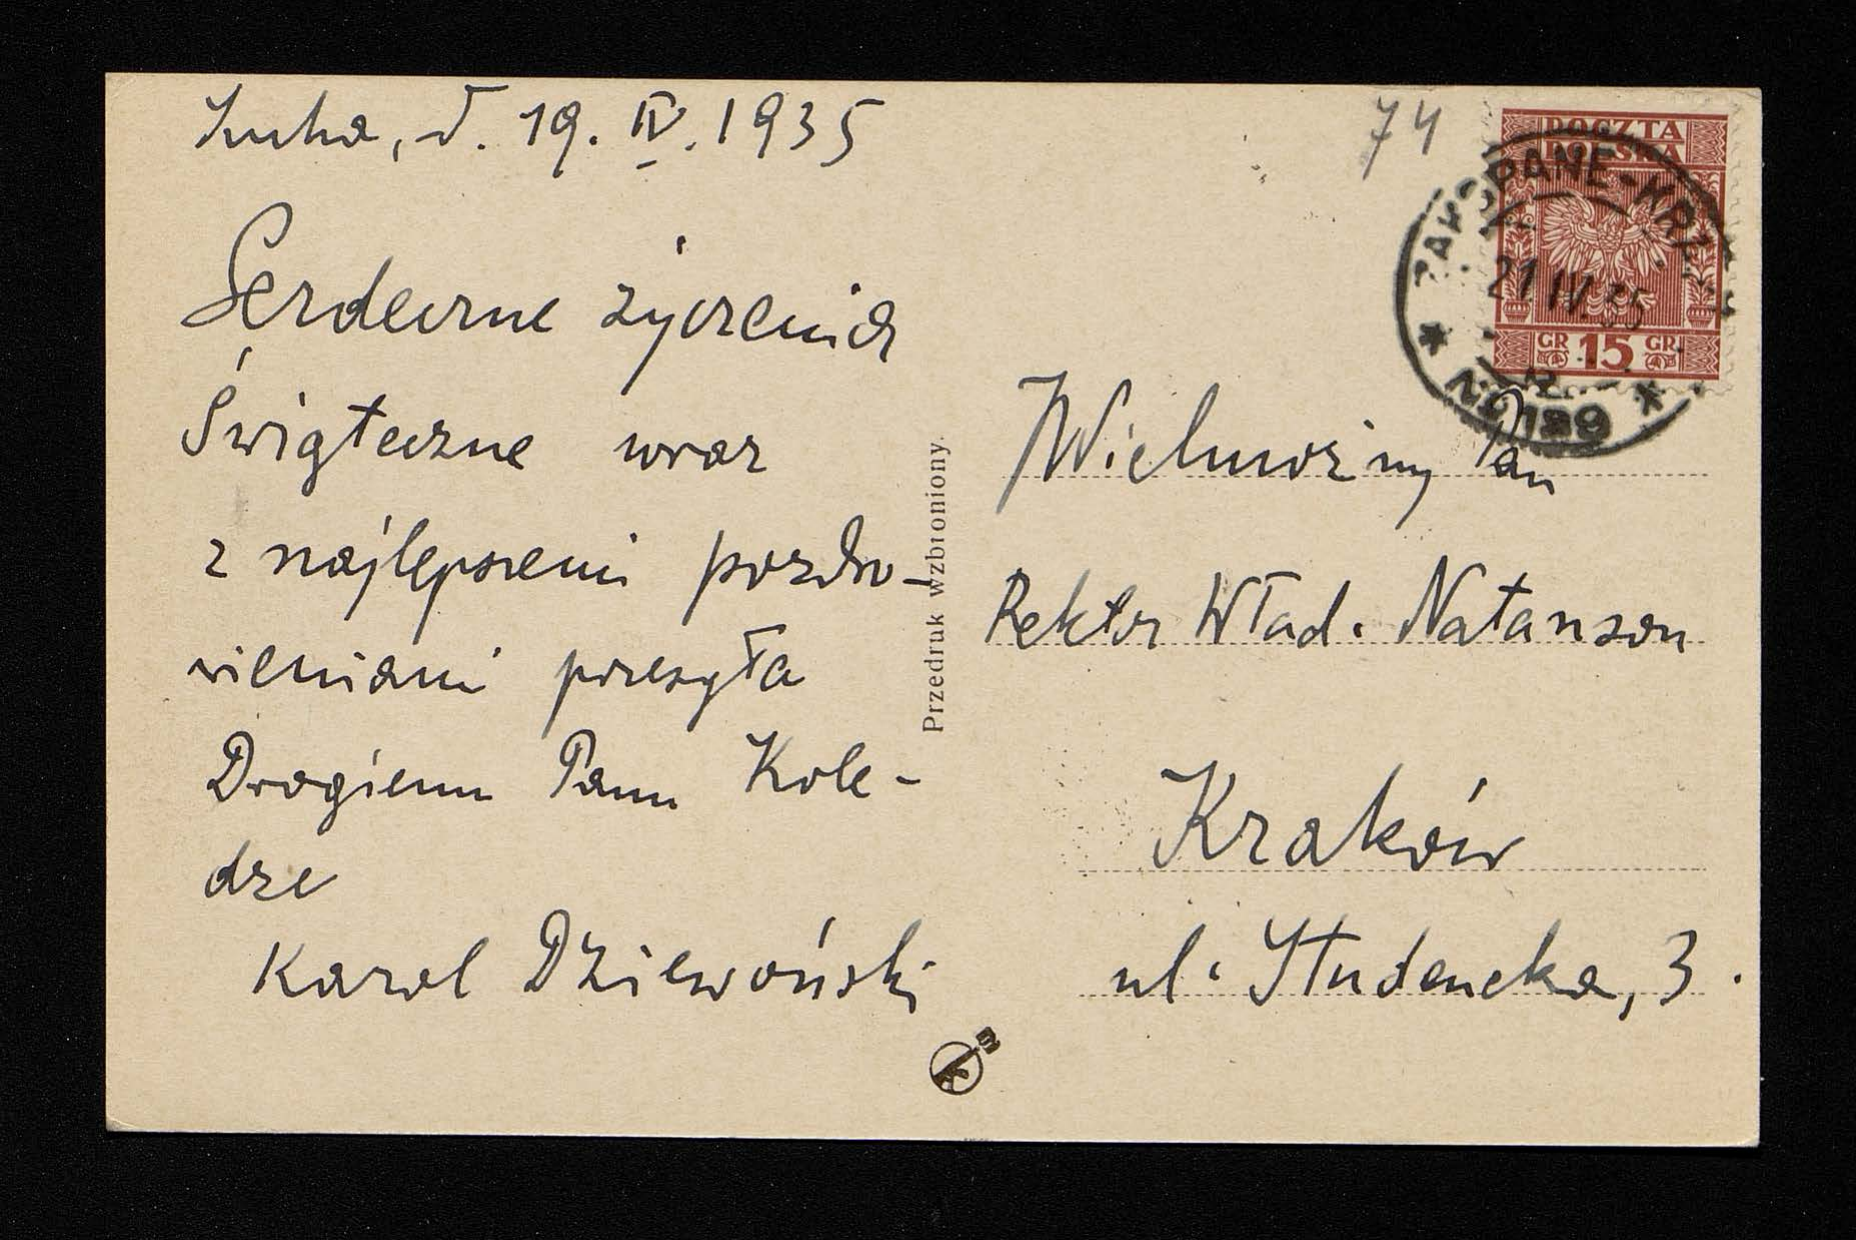 Sucha, d. 19. IV. 1935
Serdeczne życzenia
Świąteczne wraz
z najlepszemi pozdro-
wieniami przesyła
Drogiemu Panu Kole-
dze
Karol Dziewoński
Przedruk wzbroniony.
74
POCZTA
POLSKA
GR 15 GR
ZAKOPANE-KRZ
21.IV.35
Wielmożny Pan
Rektor Wład. Natanson
Kraków
ul. Studencka, 3.